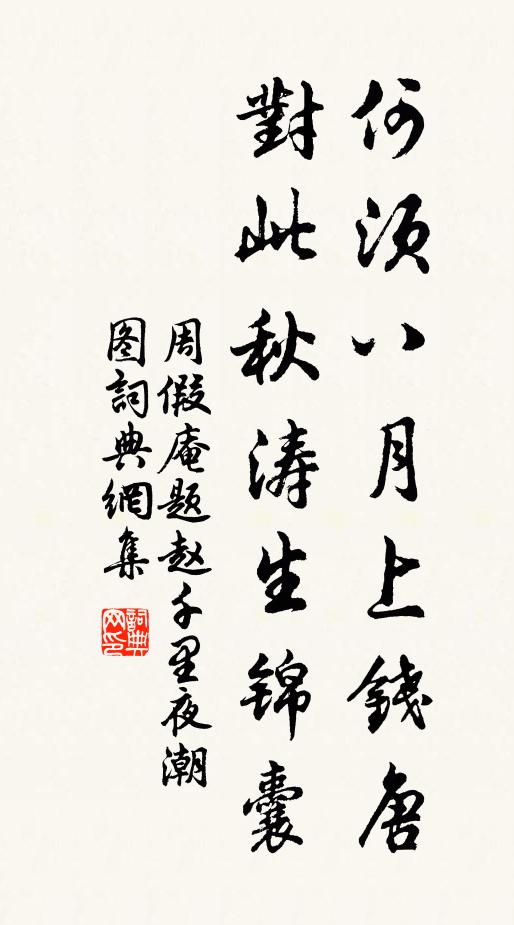 何须八月上錢唐
對此秋涛生锦囊
周假庵题赵千里夜潮
图詞典網集
詞典网印